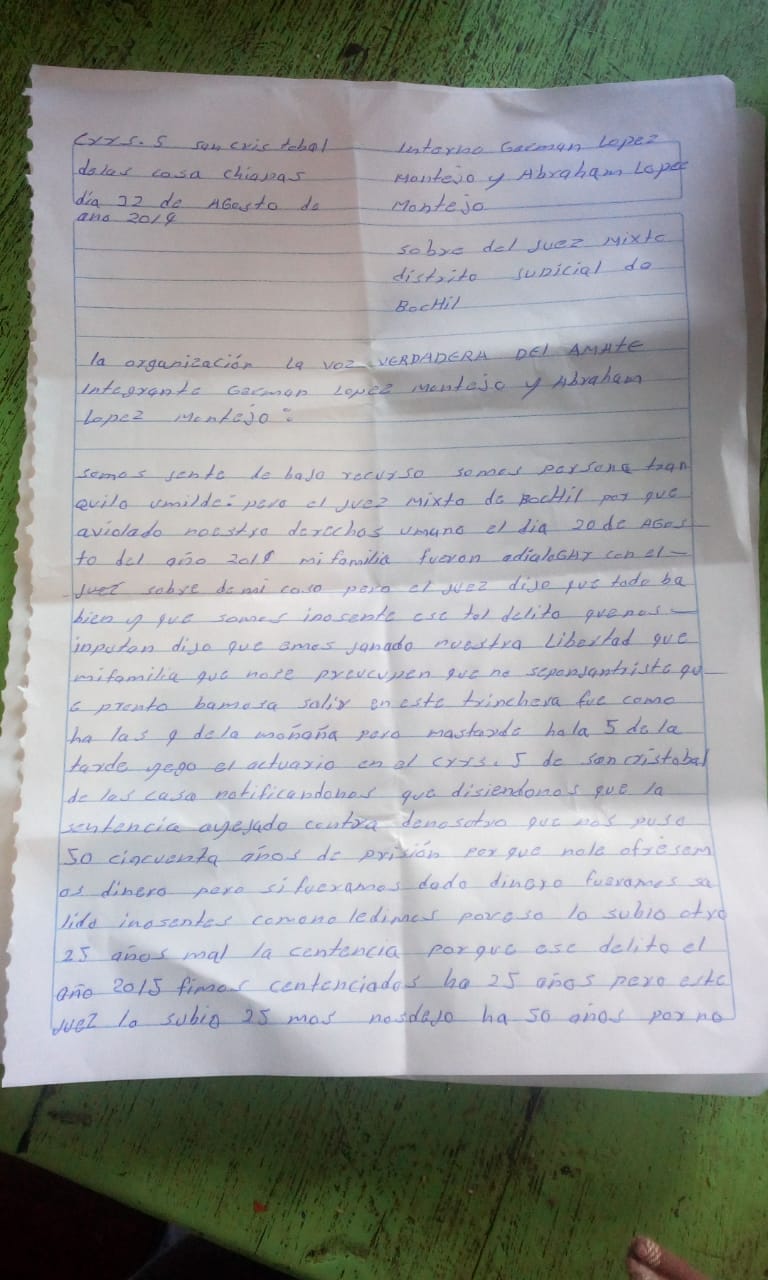 Crrs. 5 san cris tobal
delas casa chiapas
día 22 de AGosto de
año 2019
Interno German Lopez
Montejo y Abraham Lopez
Montejo
sobre del juez Mixto
distrito judicial de
BocHil
la organización la voz VERDADERA DEl AMAtE
Integrante German Lopez Montejo y Abraham
Lopez Montejo:
somos jente de bajo recurso somos persona tran
quilo umilde: pero el juez mixto de BocHil por que
aviolado noestro derechos umano el dia 20 de AGos-
to del año 2019 mi familia fueron adialoGAr con el-
juez sobre de mi caso pero el juez dijo que todo ba
bien y que somos inosente ese tol delito quenos-
inputan dijo que emos janado nuestra libertad que
mifamilia que nose preucupen que no seponjantriste qu-
e pronto bamosa salir en este trinchera fue como
ha las 9 dela mañana pero mastarde hala 5 de la
tarde yego el actuario en al crrs. 5 de san cristobal
de las casa notificandonos que disiendonos que la
sentencia ayejado contra denosotro que nos puso
50 cincuenta años de prisión por que nole ofresem
os dinero pero si fueramos dado dinero fueramos sa
lido inosentes comono ledimos poreso lo subio otro
25 años mal la centencia porque ese delito el
año 2015 fimos centenciados ha 25 años pero este
juez lo subio 25 mas nosdejo ha 50 años por no